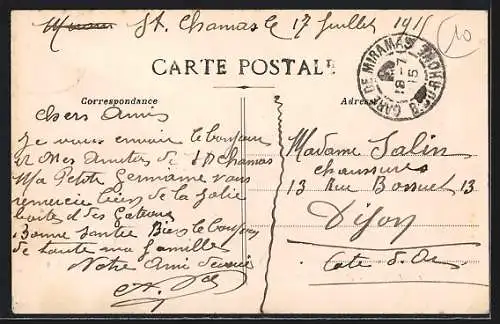 St. Chamas le 17 Juillet 1915
10
CARTE POSTALE
GARE DE MIRAMAS B. DU RHONE
18-7
15
Correspondance
Adresse
Chers Amis
Je vous envoie le bonjour
et mes Amitiés de St Chamas
Ma Petite Germaine vous
remercie bien de la jolie
boite et des Gateaux
Bonne Santée Bien le bonjour
de toute ma famille
Votre Ami
Madame Salin
chaussures
13 Rue Bossuet 13
Dijon
Cote d'Or